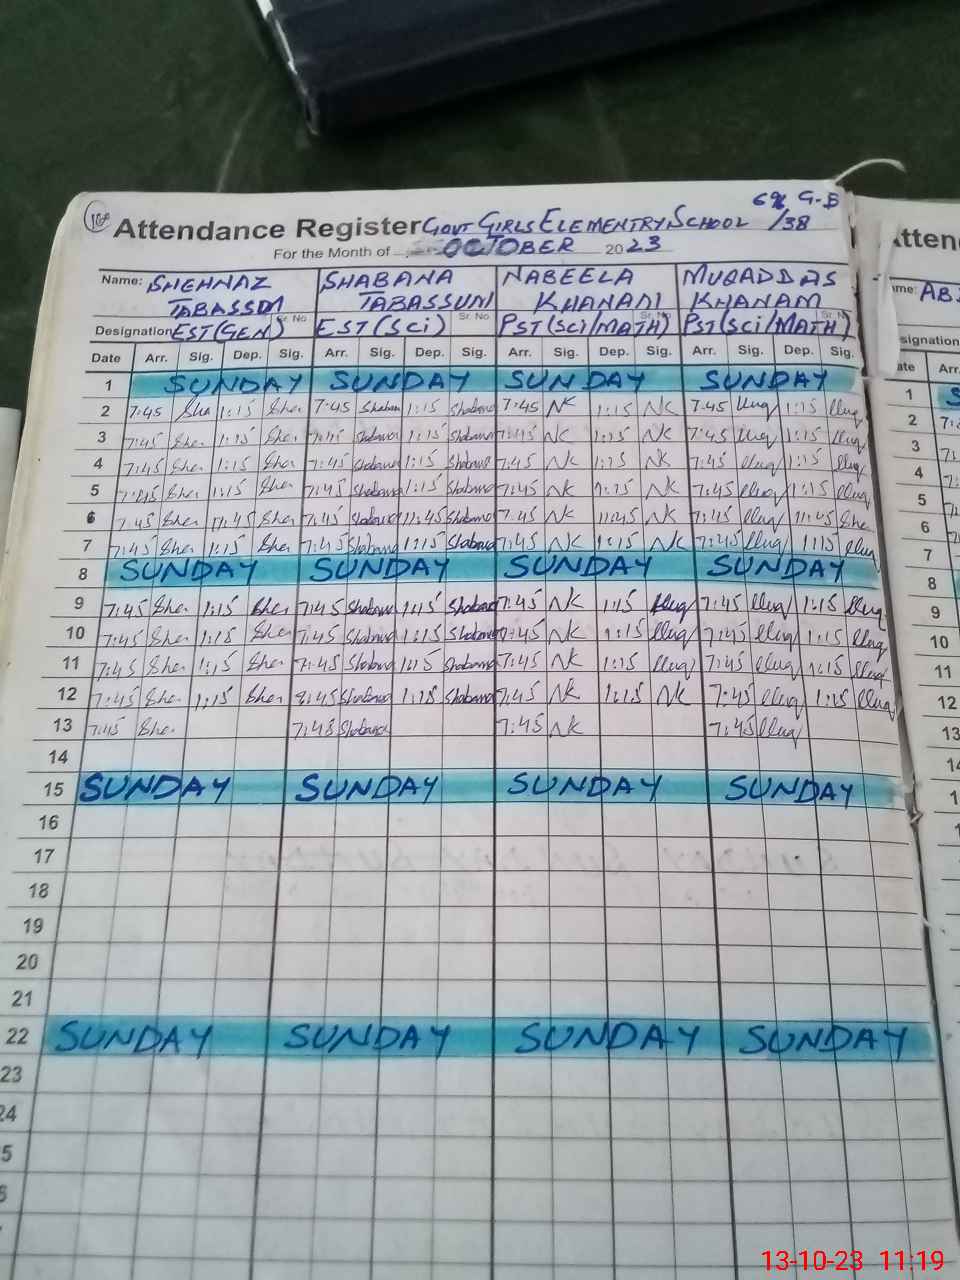 Attendance Register GOVT GIRLS ELEMENTRY SCHOOL /38 G-B
For the Month of OCTOBER 2023
Name: SHEHNAZ TABASSUM SHABANA TABASSUM NABEELA KHANAM MUQADDAS KHANAM
Designation EST(GEN) Sr. No EST(SCi) Sr. No PST(SCi/MATH) Sr. No PST(SCi/MATH)
Date Arr. Sig. Dep. Sig. Arr. Sig. Dep. Sig. Arr. Sig. Dep. Sig. Arr. Sig. Dep. Sig.
1 SUNDAY SUNDAY SUNDAY SUNDAY
2 7:45 Sha 1:15 Sher 7:45 Shabana 1:15 Shabana 7:45 NK 1:15 NK 7:45 1:15
3 7:45 Sher 1:15 Sher Shabana 1:15 Shabana 7:45 NK 1:15 NK 7:45 1:15
4 7:45 Sher 1:15 Sher 7:45 Shabana 1:15 Shabana 7:45 NK 1:15 NK 7:45 1:15
5 7:45 Sher 1:15 Sher 7:45 Shabana 1:15 Shabana 7:45 NK 1:15 NK 7:45 1:15
6 7:45 Sher 11:45 Sher 7:45 Shabana 11:45 Shabana 7:45 NK 11:45 NK 7:45 11:45 Sher
7 7:45 Sher 1:15 Sher 7:45 Shabana 1:15 Shabana 7:45 NK 1:15 NK 7:45 1:15
8 SUNDAY SUNDAY SUNDAY SUNDAY
9 7:45 Sher 1:15 Sher 7:45 Shabana 1:15 Shabana 7:45 NK 1:15 7:45 1:15
10 7:45 Sher 1:15 Sher 7:45 Shabana 1:15 Shabana 7:45 NK 1:15 7:45 1:15
11 7:45 Sher 1:15 Sher 7:45 Shabana 1:15 Shabana 7:45 NK 1:15 7:45 1:15
12 7:45 Sher 1:15 Sher Shabana 1:15 Shabana 7:45 NK 1:15 NK 7:45 1:15
13 7:45 Sher 7:45 Shabana 7:45 NK 7:45
14
15 SUNDAY SUNDAY SUNDAY SUNDAY
16
17
18
19
20
21
22 SUNDAY SUNDAY SUNDAY SUNDAY
23
24
Atten
AB
Arr.
1
2
3
4
5
6
7
8
9
10
11
12
13
13-10-23 11:19